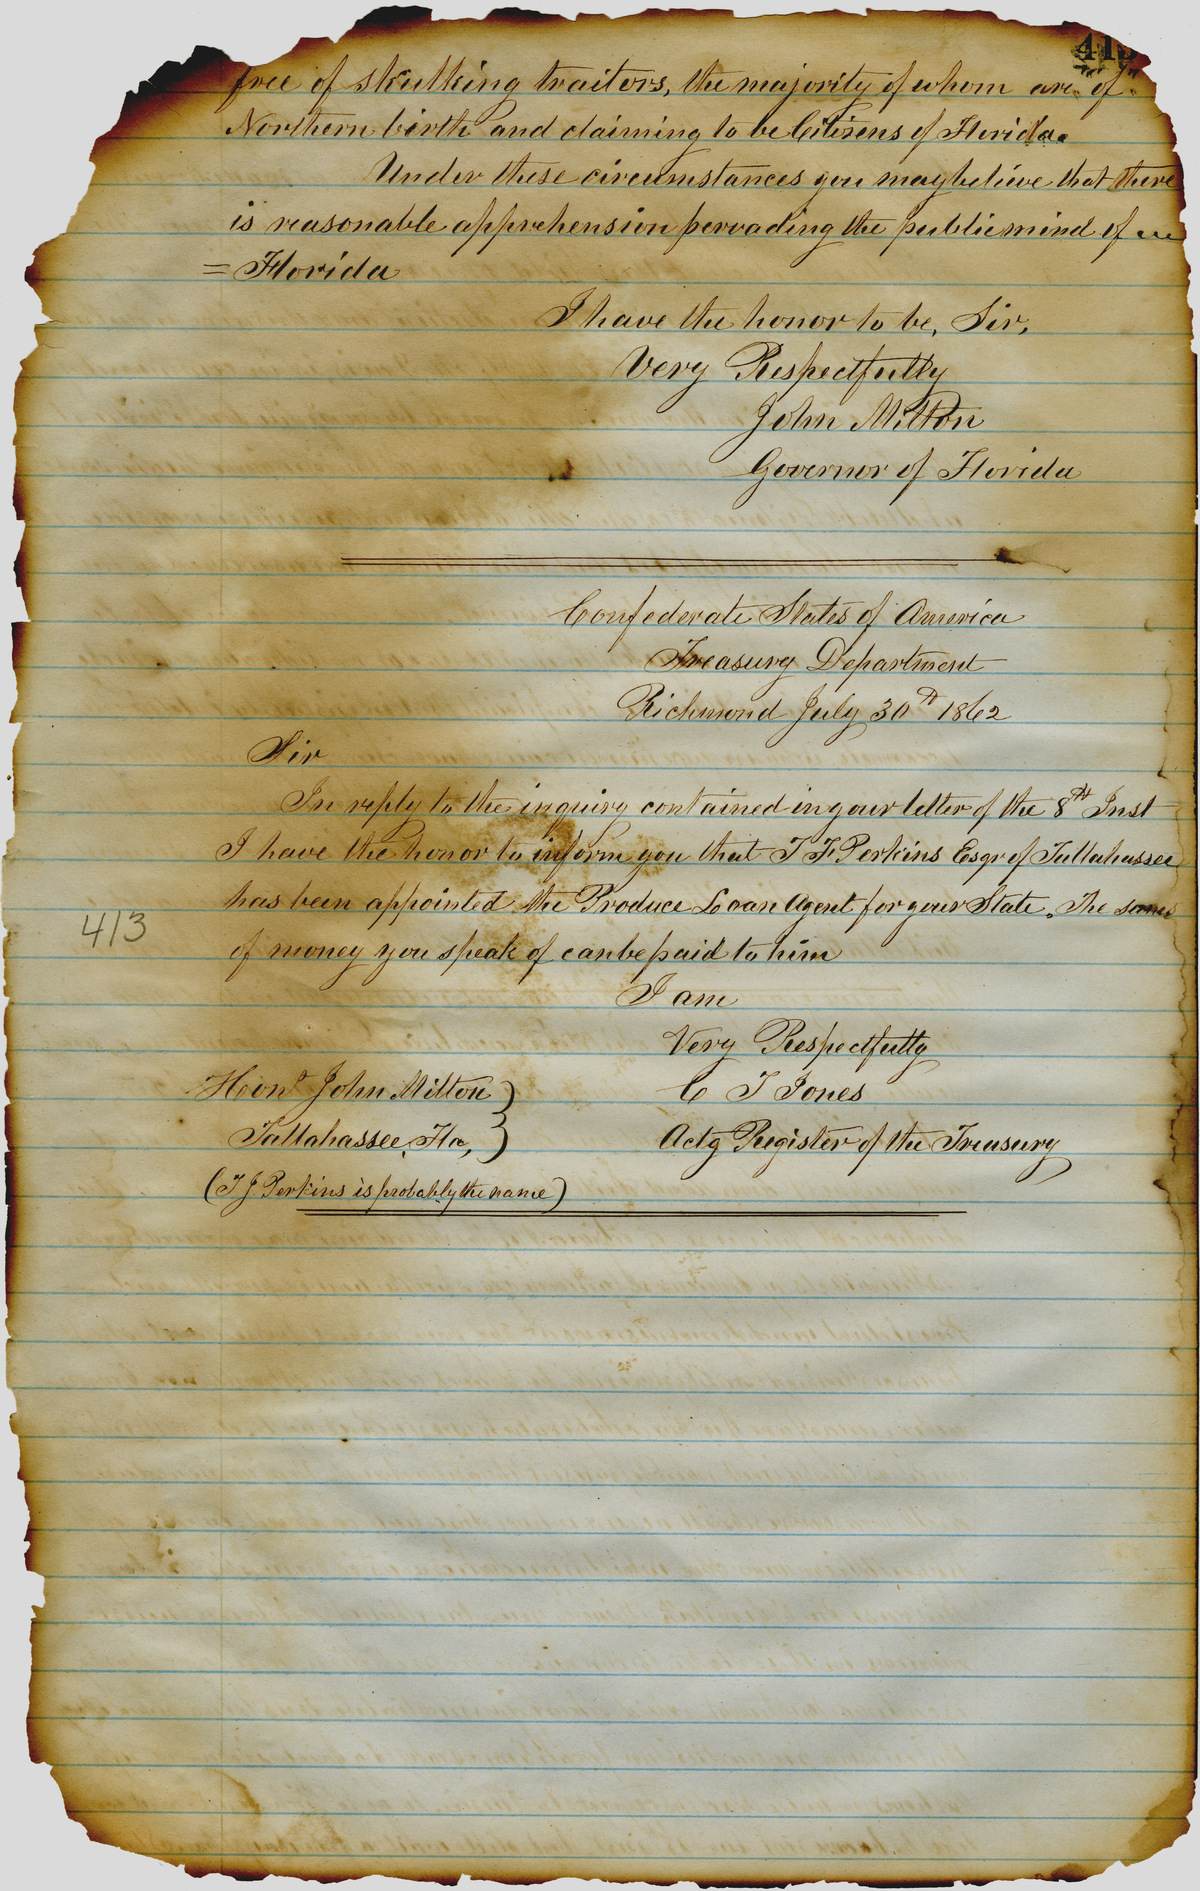 413
free of skulking traitors, the majority of whom are of
Northern birth and claiming to be Citizens of Florida.
Under these circumstances you may believe that there
is reasonable apprehension pervading the public mind of
= Florida
I have the honor to be, Sir,
Very Respectfully
John Milton
Governor of Florida
Confederate States of America
Treasury Department
Richmond July 30th 1862
Sir
In reply to the inquiry contained in your letter of the 8th Inst
I have the honor to inform you that T F Perkins Esqr of Tallahassee
has been appointed the Produce Loan Agent for your State. The sums
413
of money you speak of can be paid to him
I am
Very Respectfully
Hon. John Milton } C T Jones
Tallahassee, Fla, } Actg Register of the Treasury
(T J. Perkins is probably the name)